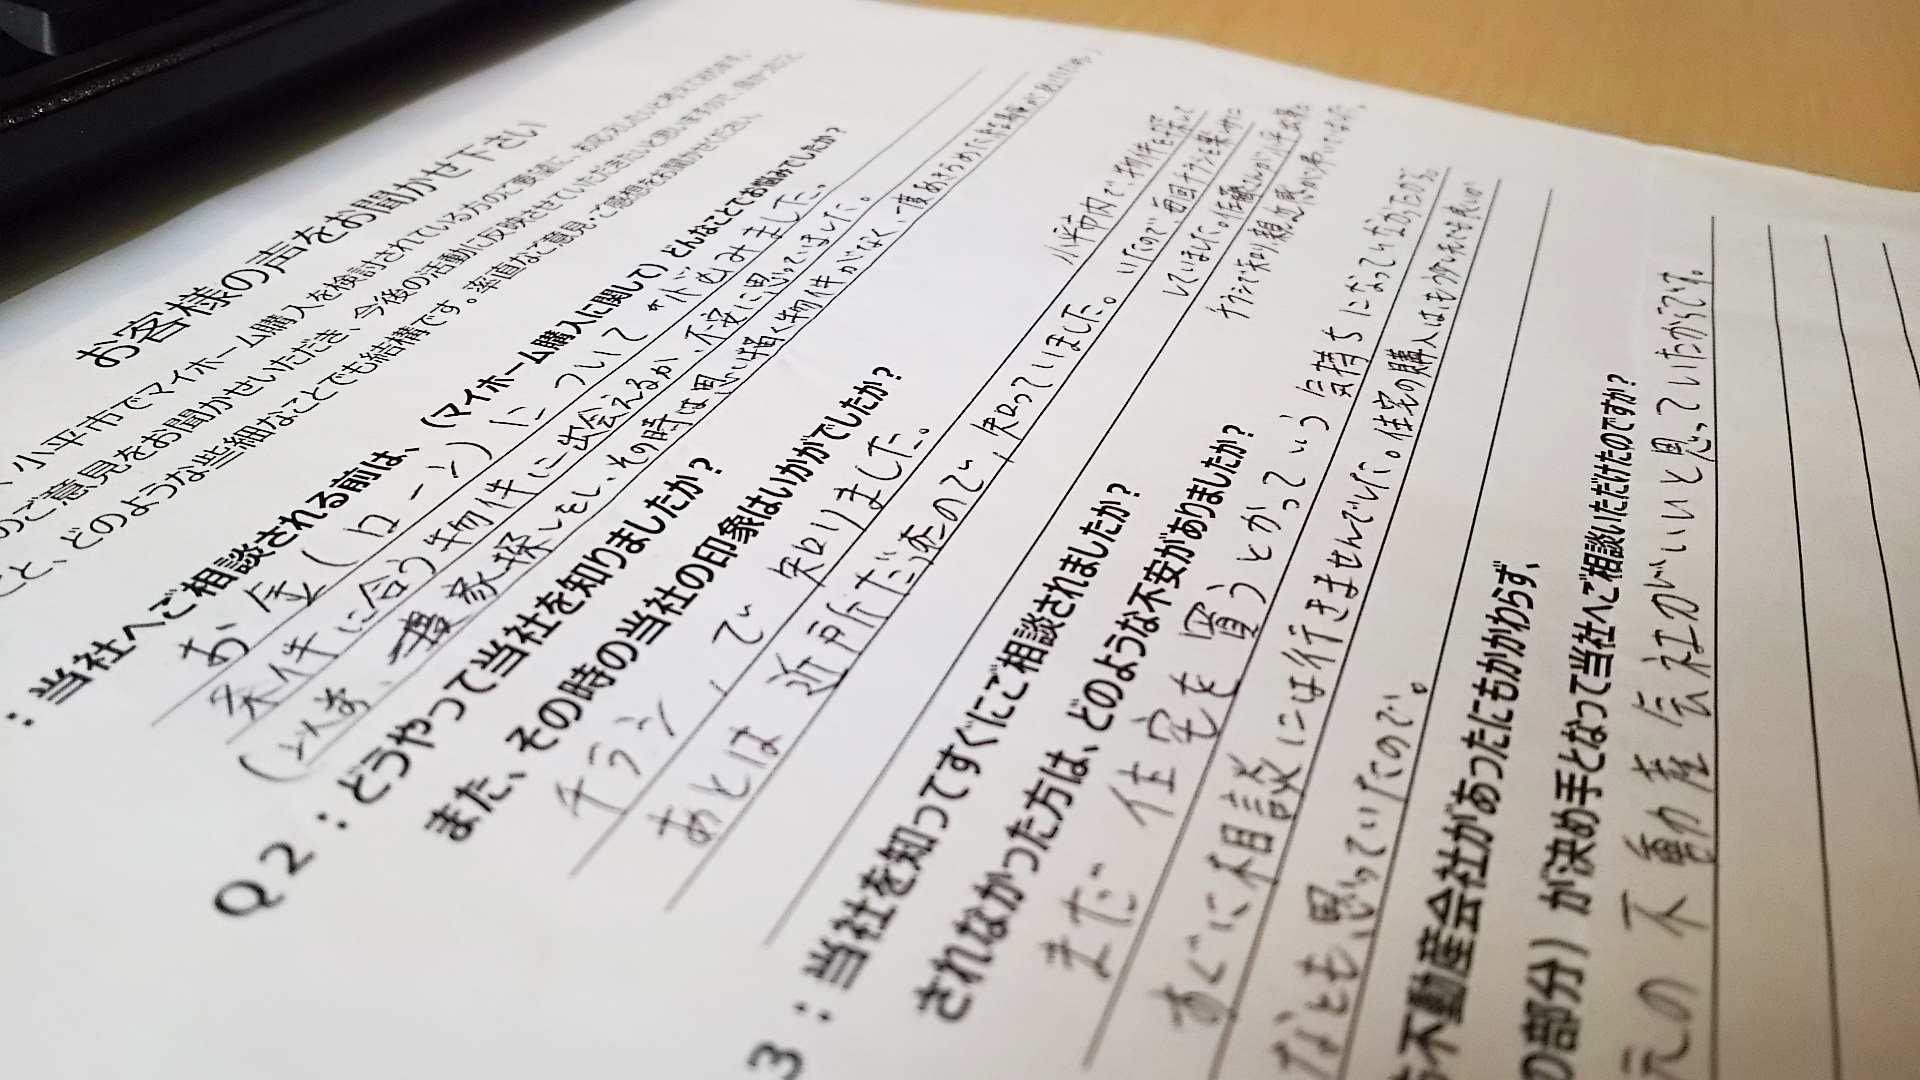 お客様の声をお聞かせ下さい
小平市でマイホーム購入を検討されている方のご要望に、お応えしたいと考えております。
のご意見をお聞かせいただき、今後の活動に反映させていただきたいと思いますので、
こと、どのような些細なことでも結構です。率直なご意見・ご感想をお聞かせください。
：当社へご相談される前は、（マイホーム購入に関して）どんなことでお悩みでしたか？
お金（ローン）について なやみました。
条件に合う物件に出会えるか、不安に思っていました。
（以前、一度家探しをし、その時は思い描く物件がなく、一度あきらめた
Q2：どうやって当社を知りましたか？
また、その時の当社の印象はいかがでしたか？
チラシ、で 知りました。
あとは 近所だったので、知っていました。
小平市内で、物件を探して
いたので、毎回チラシを楽しみに
していました。
チラシで知り親近感が
3：当社を知ってすぐにご相談されましたか？
されなかった方は、どのような不安がありましたか？
まだ 住宅を買うとかっていう気持ちになっていなかったから。
すぐに相談には行きませんでした。住宅の購入はもう少し先でも良いか
なとも思っていたので。
不動産会社があったにもかかわらず、
の部分）が決め手となって当社へご相談いただけたのですか？
元の不動産会社がいいと思っていたからです。